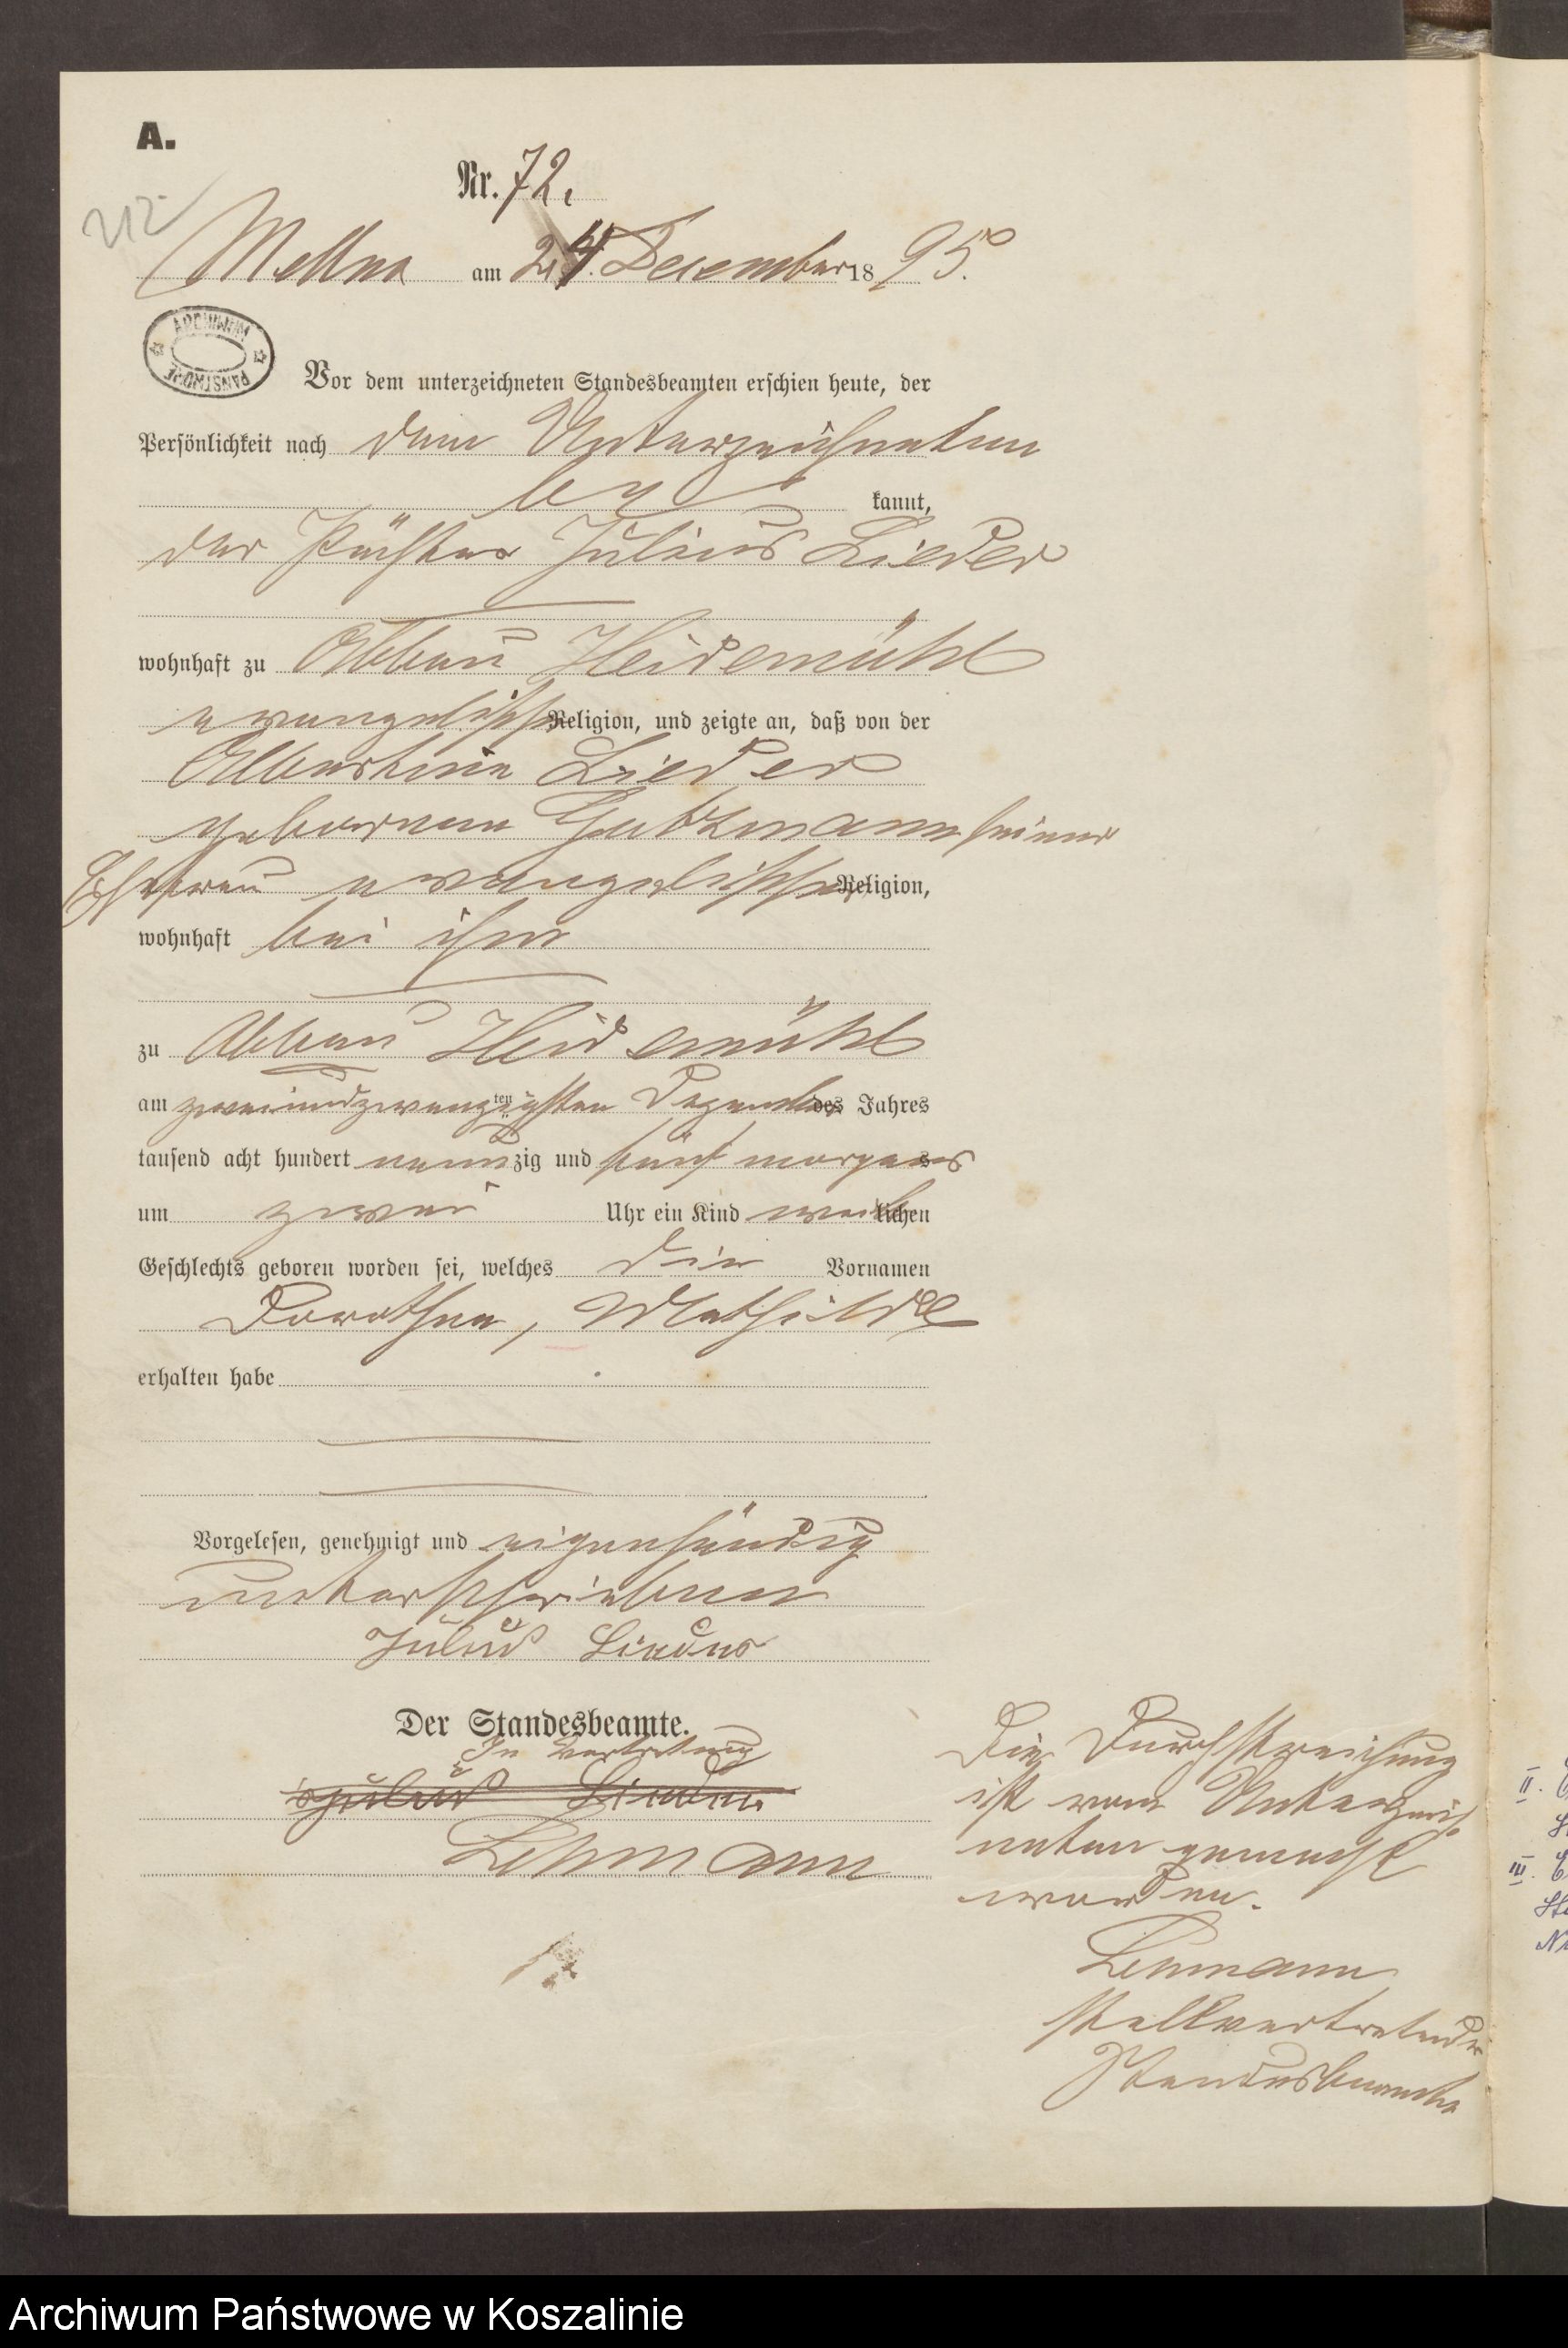 A.
Nr. 72.
212
Mellno am 24. December 18 95.
ARCHIWUM PAŃSTWOWE
Vor dem unterzeichneten Standesbeamten erschien heute, der
Persönlichkeit nach dem Unterzeichneten
kannt,
der Pächter Julius Lieder
wohnhaft zu Abbau Heidemühl
evangelischer Religion, und zeigte an, daß von der
Albertine Lieder
geborenen Gutzmann seiner
Ehefrau evangelischer Religion,
wohnhaft bei ihm
zu Abbau Heidemühl
am zweiundzwanzigsten ten Dezember des Jahres
tausend acht hundert neunzig und fünf morgens
um zwei Uhr ein Kind weiblichen
Geschlechts geboren worden sei, welches die Vornamen
Dorothea, Mathilde
erhalten habe
Vorgelesen, genehmigt und eigenhändig
unterschrieben
Julius Lieder
Der Standesbeamte.
In Vertretung
Julius Lieder
Lehmann
Die Durchstreichung
ist vom Unterzeich
neten gemacht
worden.
Lehmann
stellvertretender
Standesbeamte
II.
III.
Archiwum Państwowe w Koszalinie